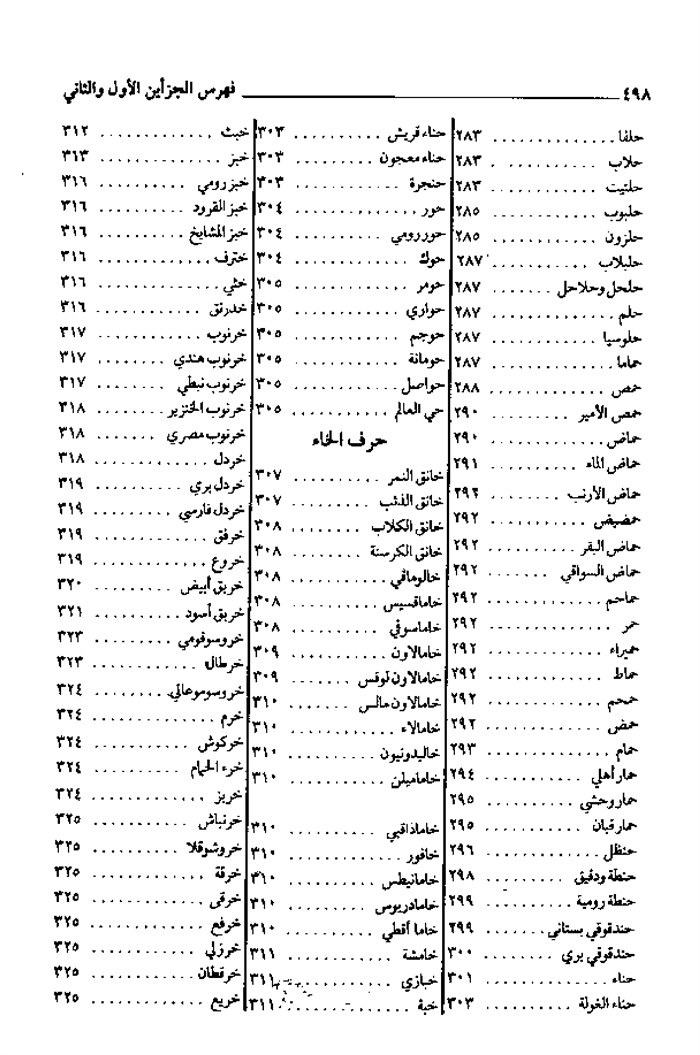 ٤٩٨ فهرس الجزأين الأول والثاني
حلفا ٢٨٣
حلاب ٢٨٣
حلتيت ٢٨٣
حلبوب ٢٨٥
حلزون ٢٨٥
حلبلاب ٢٨٧
حلحل وحلاحل ٢٨٧
حلم ٢٨٧
حلوسيا ٢٨٧
حماما ٢٨٧
حمص ٢٨٨
حمص الأمير ٢٩٠
حماض ٢٩٠
حماض الماء ٢٩١
حماض الأرنب ٢٩٢
حمضيض ٢٩٢
حماض البقر ٢٩٢
حماض السواقي ٢٩٢
حماحم ٢٩٢
حمر ٢٩٢
حميراء ٢٩٢
حماط ٢٩٢
حمحم ٢٩٢
حمض ٢٩٢
حمام ٢٩٣
حمار أهلي ٢٩٤
حمار وحشي ٢٩٥
حمار قبان ٢٩٥
حنظل ٢٩٦
حنطة ودقيق ٢٩٨
حنطة رومية ٢٩٩
حندقوقي بستاني ٢٩٩
حندقوقي بري ٣٠٠
حناء ٣٠١
حناء الغولة ٣٠٣
حناء قريش ٣٠٣
حناء معجون ٣٠٣
حنجرة ٣٠٣
حور ٣٠٤
حور رومي ٣٠٤
حوك ٣٠٤
حومر ٣٠٥
حواري ٣٠٥
حوجم ٣٠٥
حومانة ٣٠٥
حواصل ٣٠٥
حي العالم ٣٠٥
حرف الخاء
خانق النمر ٣٠٧
خانق الذئب ٣٠٧
خانق الكلاب ٣٠٨
خانق الكرسنة ٣٠٨
خالوماقي ٣٠٨
خاماقسيس ٣٠٨
خاماسوقي ٣٠٨
خامالاون ٣٠٩
خامالاون لوقس ٣٠٩
خامالاون مالس ٣١٠
خامالاء ٣١٠
خاليدونيون ٣١٠
خاماميلن ٣١٠
خاماذاقبي ٣١٠
خافور ٣١٠
خامانيطس ٣١٠
خامادريوس ٣١٠
خاما أقطي ٣١٠
خامشة ٣١١
خبازي ٣١١
خبة ٣١١
خبث ٣١٢
خبز ٣١٣
خبز رومي ٣١٦
خبز القرود ٣١٦
خبز المشايخ ٣١٦
خترف ٣١٦
خثي ٣١٦
خدرنق ٣١٦
خرنوب ٣١٧
خرنوب هندي ٣١٧
خرنوب نبطي ٣١٧
خرنوب الخنزير ٣١٨
خرنوب مصري ٣١٨
خردل ٣١٨
خردل بري ٣١٩
خردل فارسي ٣١٩
خرفق ٣١٩
خروع ٣١٩
خربق أبيض ٣٢٠
خربق أسود ٣٢١
خروسوفومي ٣٢٣
خرطال ٣٢٣
خروسوموعالي ٣٢٤
خرم ٣٢٤
خركوش ٣٢٤
خرء الحمام ٣٢٤
خربز ٣٢٤
خرنباش ٣٢٥
خروشوقلا ٣٢٥
خرقة ٣٢٥
خرقى ٣٢٥
خرفع ٣٢٥
خرزلي ٣٢٥
خرقطان ٣٢٥
خريع ٣٢٥